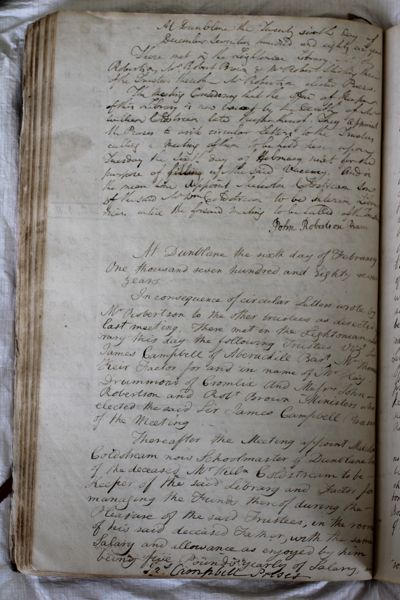 At Dunblane the Twenty sixth day of
December Seventeen hundred and eighty
There met in the Leightonian Library
Robertson, Mr Robert Brown
the Trustees thereof Mr Robertson elected Preses.
The Meeting Considering that the Office of Keeper
of this Library is now vacant by the death of Mr
William Coldstream late they appoint
the Preses to write circular Letters to the Trustees
calling a meeting of them to be held here upon
Tuesday the sixth day of February next for the
purpose of filling up the said Vacancy. And in
the mean time appoint Malcolm Coldstream Son
of the said Mr Wm Coldstream to be interim
until the
John Robertson
At Dunblane the sixth day of February
One thousand seven hundred and Eighty seven
years
In consequence of circular Letters wrote by
Mr Robertson to the other trustees as directed
last meeting. There met in the Leightonian
rary this day the following Trustees Viz Sir
James Campbell of Aberuchill Bart. Mr Thomas
Keir Factor for and in name of Mr Hay
Drummond of Cromlix and Messrs John
Robertson and Robt Brown Ministers who
elected the said Sir James Campbell
of the Meeting
Thereafter the Meeting appoint Malcolm
Coldstream now Schoolmaster of Dunblane
of the deceased Mr Willm Coldstream to be
Keeper of the said Library and Factor for
managing the Funds thereof during the
Pleasure of the said Trustees, in the room
of his said deceased Father, with the same
Salary and allowance as enjoyed by him
being five Pounds yearly of Salary.
Jas Campbell Preses